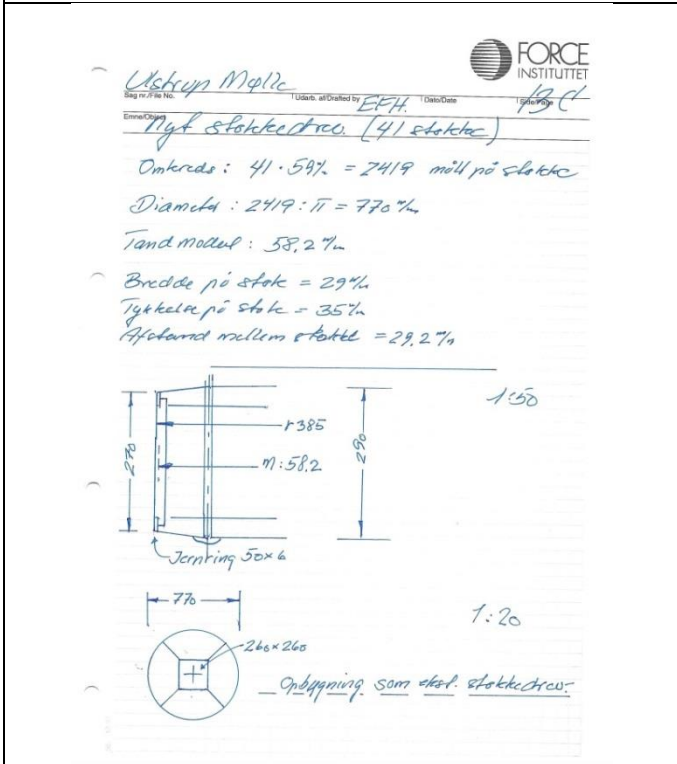 FORCE
INSTITUTTET
Ulstrup Mølle
Sag nr./File No.
Udarb. af/Drafted by EFH.
Dato/Date
Side/Page 13 C
Emne/Object
Nyt stokkedrev. (41 stokke)
Omkreds: 41 · 59 m/m = 2419 målt på stokke
Diameter: 2419 : π = 770 m/m
Tandmodul: 58,2 m/m
Bredde på stok = 29 m/m
Tykkelse på stok = 35 m/m
Afstand mellem stokke = 29,2 m/m
1:50
r 385
270
290
m: 58,2
Jernring 50×6
770
1:20
260×260
Opbygning som eksl. stokkedrev.